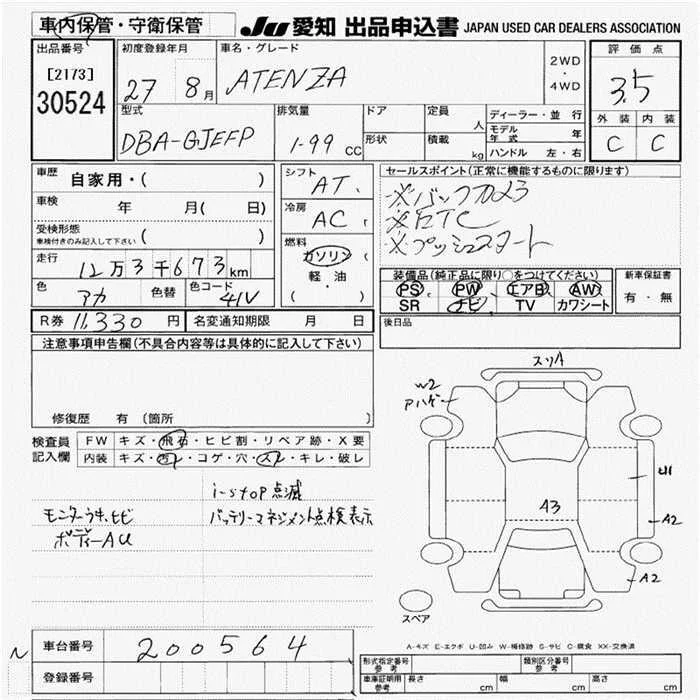 車内保管・守衛保管
JU 愛知 出品申込書 JAPAN USED CAR DEALERS ASSOCIATION
出品番号 初度登録年月 車名・グレード 2WD・4WD 評価点
[2173]
30524 27 8月 ATENZA 3.5
外装 内装
C C
型式 排気量 ドア 定員 人 ディーラー・並行
DBA-GJEFP 1.99 cc 形状 積載 kg モデル年式 年
ハンドル 左・右
車歴 自家用・( ) シフト AT. セールスポイント(正常に機能するものに限ります)
車検 年 月( 日) 冷房 AC ※バックカメラ
※ETC
受検形態 ( ) ※プッシュスタート
車検付きのみ記入して下さい
走行 12万3千673km 燃料 ガソリン
軽・油
( )
装備品(純正品に限り○をつけてください) 新車保証書
PS PW エアB AW 有・無
SR ナビ TV カワシート
色 アカ 色替 色コード 41V
R券 11,330円 名変通知期限 月 日 後日品
注意事項申告欄(不具合内容等は具体的に記入して下さい)
修復歴 有 (箇所 )
検査員 FW キズ・飛石・ヒビ割・リペア跡・X要
記入欄 内装 キズ・汚レ・コゲ・穴・スレ・キレ・破レ
i-stop点滅
モニターうき、ヒビ バッテリーマネジメント点検表示
ボディーAU
スリA
W2
Pハゲ
U1
A3
A2
A2
スペア
A-キズ E-エクボ U-凹み W-補修跡 S-サビ C-腐食 XX-交換済
N 車台番号 200564
登録番号
形式指定番号 参考 類別区分番号 参考
車庫証明用 参考 長さ cm 幅 cm 高さ cm